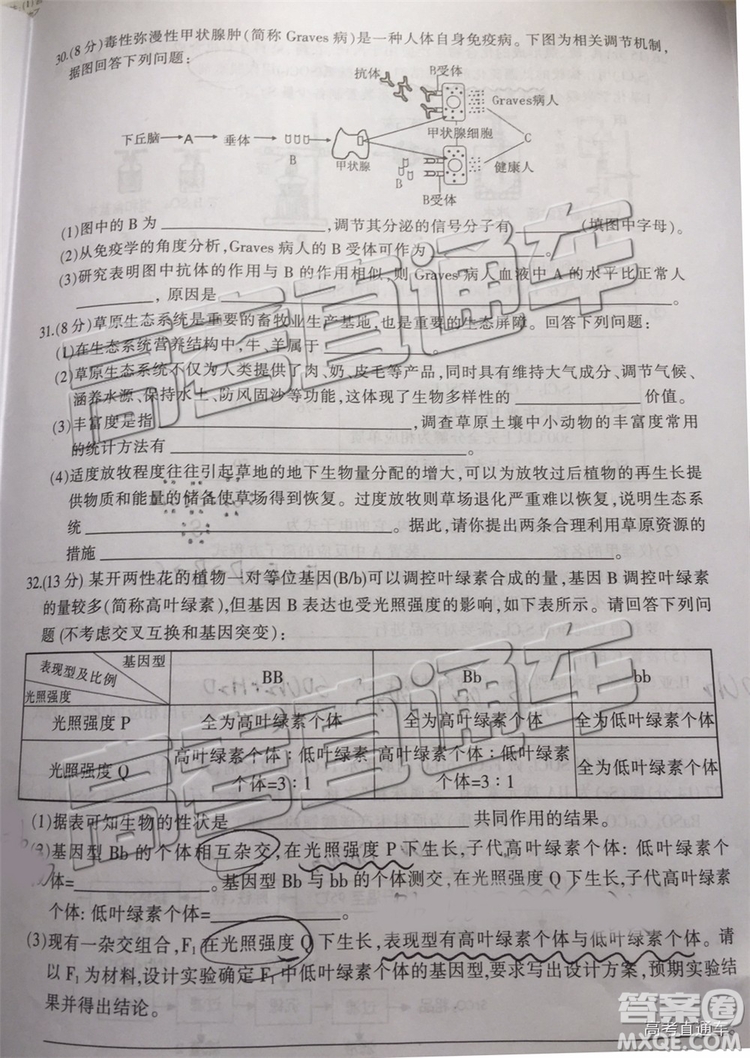 30.(8分)毒性弥漫性甲状腺肿(简称 Graves 病)是一种人体自身免疫病。下图为相关调节机制,
据图回答下列问题:
抗体
B受体
Graves病人
下丘脑
A
垂体
B
甲状腺
甲状腺细胞
C
健康人
B受体
(1)图中的 B 为____________,调节其分泌的信号分子有________(填图中字母)。
(2)从免疫学的角度分析,Graves 病人的 B 受体可作为____________。
(3)研究表明图中抗体的作用与 B 的作用相似,则 Graves 病人血液中 A 的水平比正常人
________,原因是____________。
31.(8分)草原生态系统是重要的畜牧业生产基地,也是重要的生态屏障。回答下列问题:
(1)在生态系统营养结构中,牛、羊属于____________。
(2)草原生态系统不仅为人类提供了肉、奶、皮毛等产品,同时具有维持大气成分、调节气候、
涵养水源、保持水土、防风固沙等功能,这体现了生物多样性的____________价值。
(3)丰富度是指____________,调查草原土壤中小动物的丰富度常用
的统计方法有____________。
(4)适度放牧程度往往引起草地的地下生物量分配的增大,可以为放牧过后植物的再生长提
供物质和能量的储备使草场得到恢复。过度放牧则草场退化严重难以恢复,说明生态系
统____________。据此,请你提出两条合理利用草原资源的
措施____________。
32.(13分)某开两性花的植物一对等位基因(B/b)可以调控叶绿素合成的量,基因 B 调控叶绿素
的量较多(简称高叶绿素),但基因 B 表达也受光照强度的影响,如下表所示。请回答下列问
题(不考虑交叉互换和基因突变):
基因型
表现型及比例
光照强度
BB
Bb
bb
光照强度 P
全为高叶绿素个体
全为高叶绿素个体
全为低叶绿素个体
光照强度 Q
高叶绿素个体:低叶绿素个体=3:1
高叶绿素个体:低叶绿素个体=3:1
全为低叶绿素个体
(1)据表可知生物的性状是____________共同作用的结果。
(2)基因型 Bb 的个体相互杂交,在光照强度 P 下生长,子代高叶绿素个体:低叶绿素个
体=____________。基因型 Bb 与 bb 的个体测交,在光照强度 Q 下生长,子代高叶绿素
个体:低叶绿素个体=____________。
(3)现有一杂交组合,F₁在光照强度 Q 下生长,表现型有高叶绿素个体与低叶绿素个体。请
以 F₁为材料,设计实验确定 F₁中低叶绿素个体的基因型,要求写出设计方案,预期实验结
果并得出结论。
高考直通车
高考直通车
答案圈
高考直通车
MXQE.COM